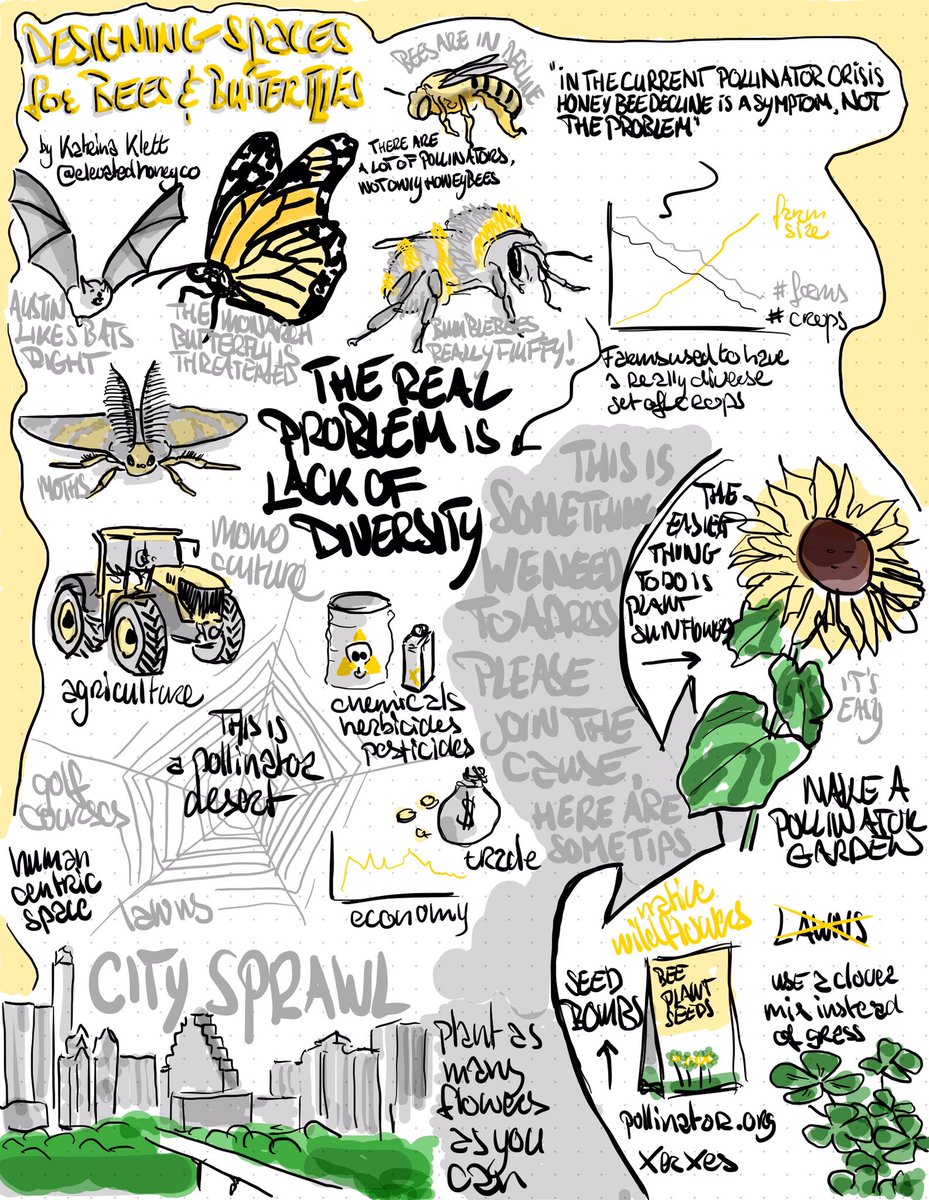 DESIGNING SPACES
for BEES & BUTTERFLIES
by Katrina Klett
@elevatedhoneyco
BEES ARE IN DECLINE
THERE ARE
A LOT OF POLLINATORS,
NOT ONLY HONEYBEES
"IN THE CURRENT POLLINATOR CRISIS
HONEY BEE DECLINE IS A SYMPTOM, NOT
THE PROBLEM"
farm
size
# farms
# crops
Farms used to have
a really diverse
set of crops
AUSTIN
LIKES BATS
RIGHT
THE MONARCH
BUTTERFLY IS
THREATENED
BUMBLEBEES
REALLY FLUFFY!
MOTHS
THE REAL
PROBLEM IS
LACK OF
DIVERSITY
mono
culture
agriculture
chemicals
herbicides
pesticides
This is
a pollinator
desert
golf
courses
human
centric
space
lawns
$
trade
economy
CITY SPRAWL
THIS IS
SOMETHING
WE NEED
TO ADRESS
PLEASE
JOIN THE
CAUSE,
HERE ARE
SOME TIPS
THE
EASIEST
THING
TO DO IS
PLANT
SUNFLOWERS
IT'S
EASY
MAKE A
POLLINATOR
GARDEN
plant as
many
flowers
as you
can
native
wildflowers
SEED
BOMBS
BEE
PLANT
SEEDS
pollinator.org
xerxes
LAWNS
use a clover
mix instead
of grass